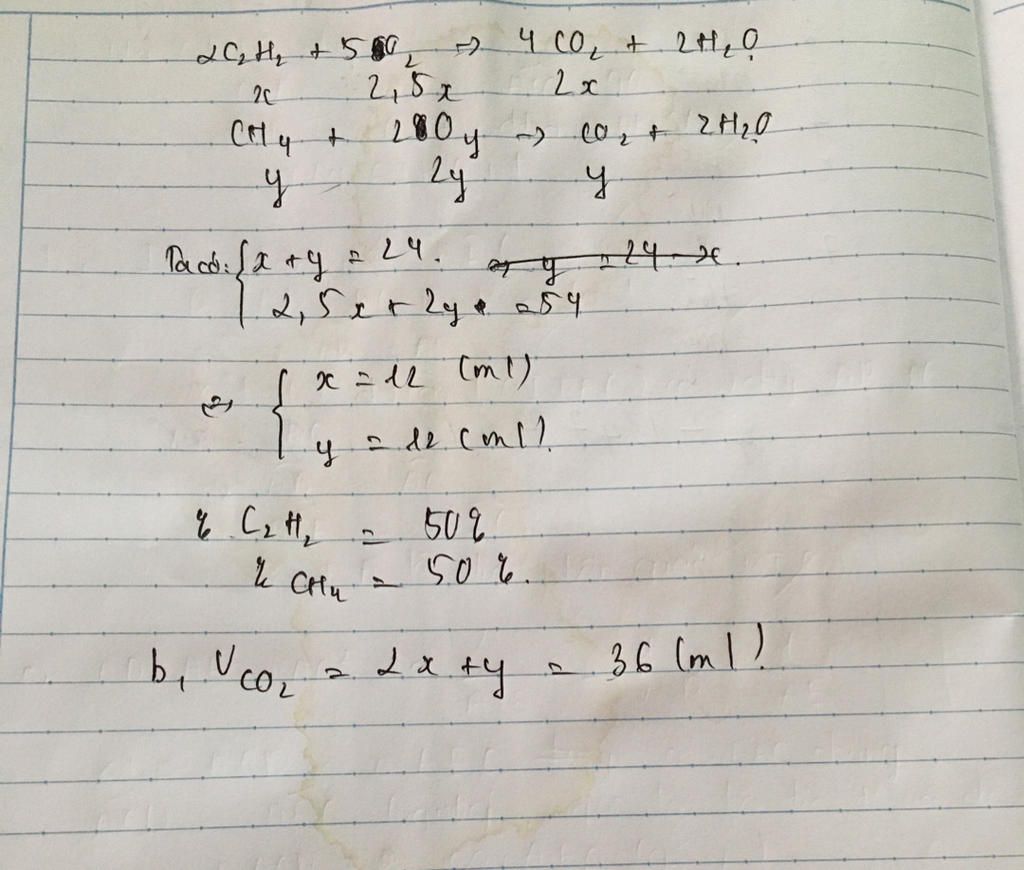 2C₂H₂ + 5O₂ → 4CO₂ + 2H₂O
x 2,5x 2x
CH₄ + 2O₂ → CO₂ + 2H₂O
y 2y y
Ta có: { x + y = 24.
2,5x + 2y = 54
⇔ { x = 12 (ml)
y = 12 (ml).
% C₂H₂ = 50%
% CH₄ = 50%.
b, V CO₂ = 2x + y = 36 (ml)